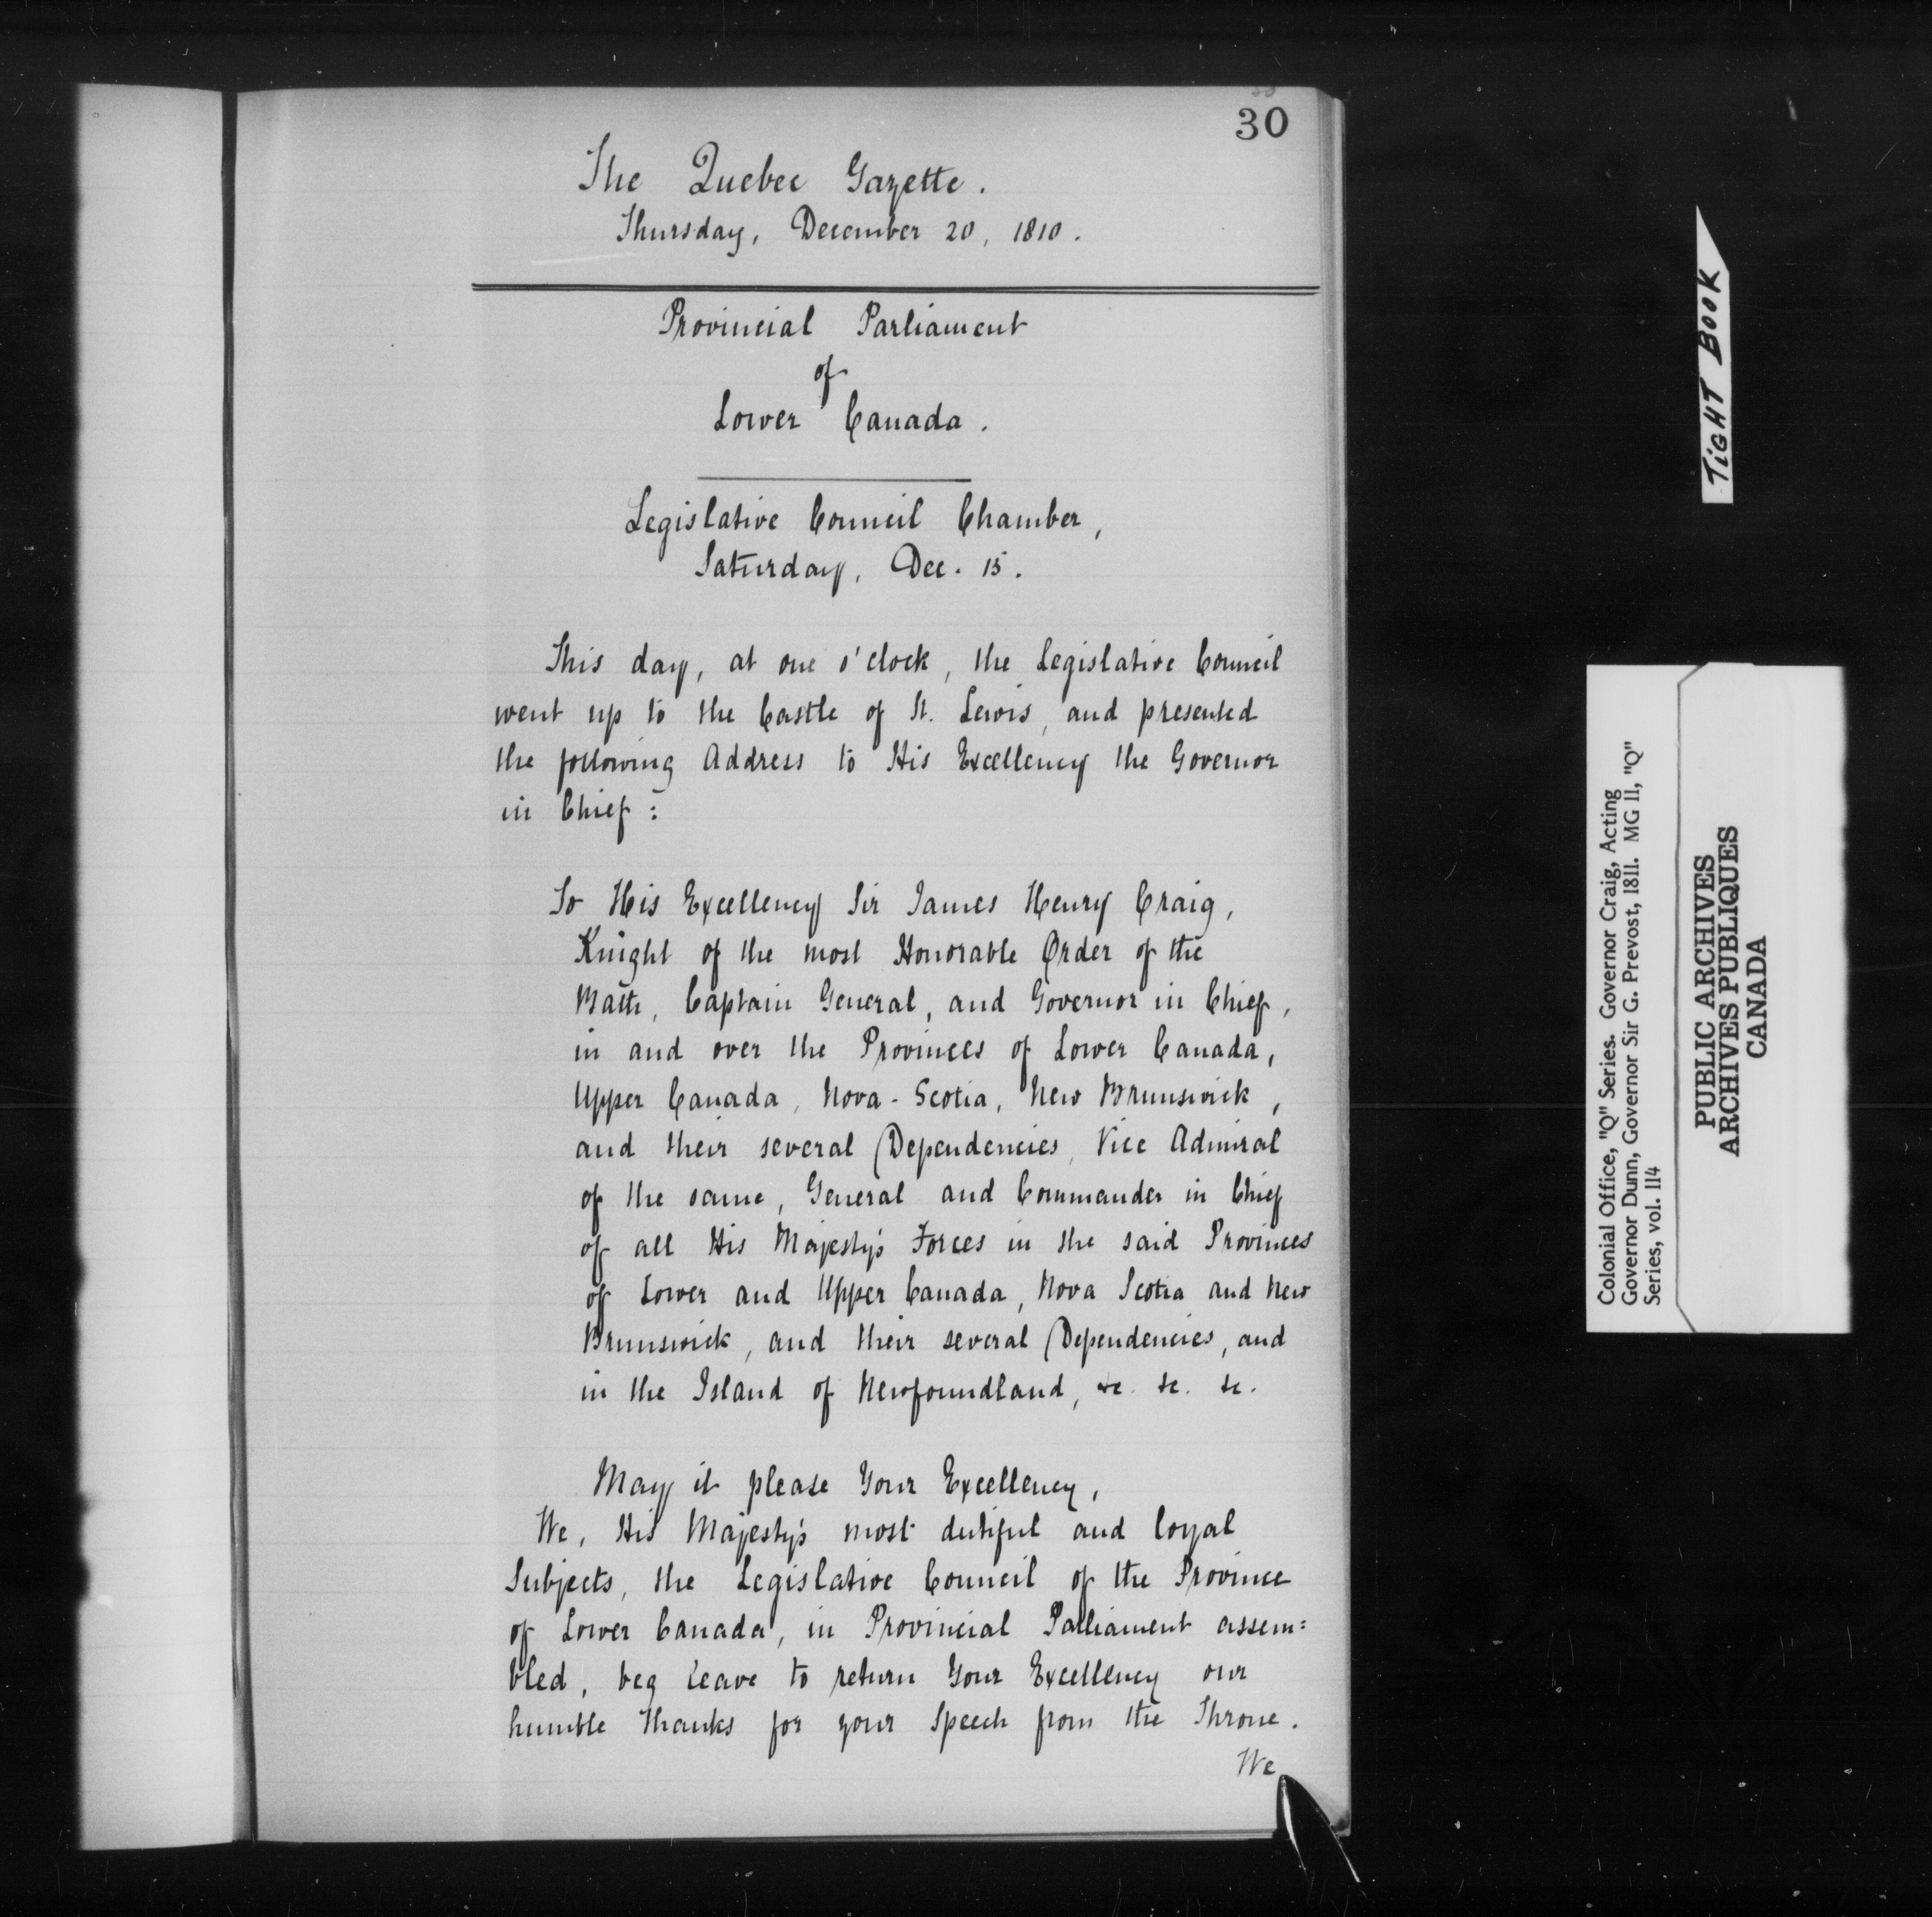 30
The Quebec Gazette.
Thursday, December 20, 1810.
Provincial Parliament
of
Lower Canada.
Legislative Council Chamber,
Saturday, Dec. 15.
This day, at one o'clock, the Legislative Council
went up to the Castle of St. Lewis, and presented
the following Address to His Excellency the Governor
in Chief:
To His Excellency Sir James Henry Craig,
Knight of the most Honorable Order of the
Bath, Captain General, and Governor in Chief,
in and over the Provinces of Lower Canada,
Upper Canada, Nova-Scotia, New Brunswick,
and their several Dependencies, Vice Admiral
of the same, General and Commander in Chief
of all His Majesty's Forces in the said Provinces
of Lower and Upper Canada, Nova Scotia and New
Brunswick, and their several Dependencies, and
in the Island of Newfoundland, &c. &c. &c.
May it please Your Excellency,
We, His Majesty's most dutiful and loyal
Subjects, the Legislative Council of the Province
of Lower Canada, in Provincial Parliament assem=
bled, beg leave to return Your Excellency our
humble Thanks for your Speech from the Throne.
We
TIGHT BOOK
Colonial Office, "Q" Series. Governor Craig, Acting
Governor Dunn, Governor Sir G. Prevost, 1811. MG 11, "Q"
Series, vol. 114
PUBLIC ARCHIVES
ARCHIVES PUBLIQUES
CANADA